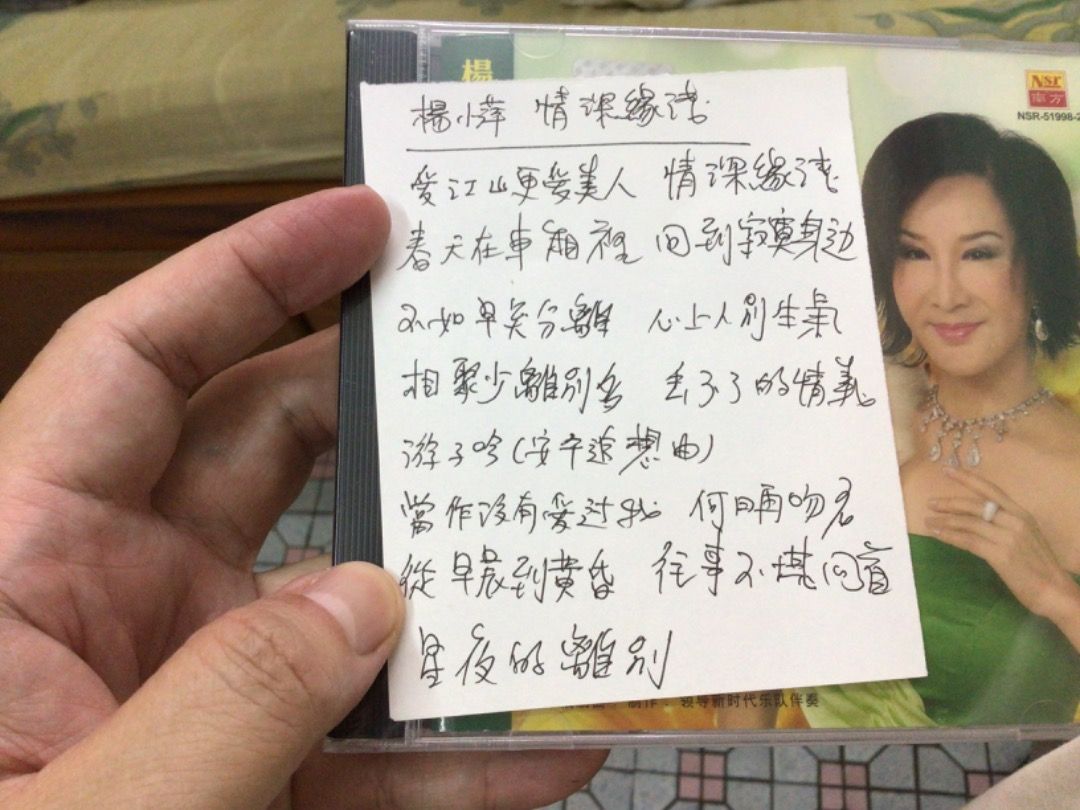 楊
Nsr
南方
NSR-51998-2
楊小萍 情深緣淺
愛江山更愛美人 情深緣淺
春天在車廂裡 回到寂寞身边
不如早矣分離 心上人别生氣
相聚少離别多 丢不了的情義
游子吟(安平追想曲)
當作没有愛过我 何日再吻君
從早晨到黄昏 往事不堪回首
星夜的離别
制作：领导新时代乐队伴奏